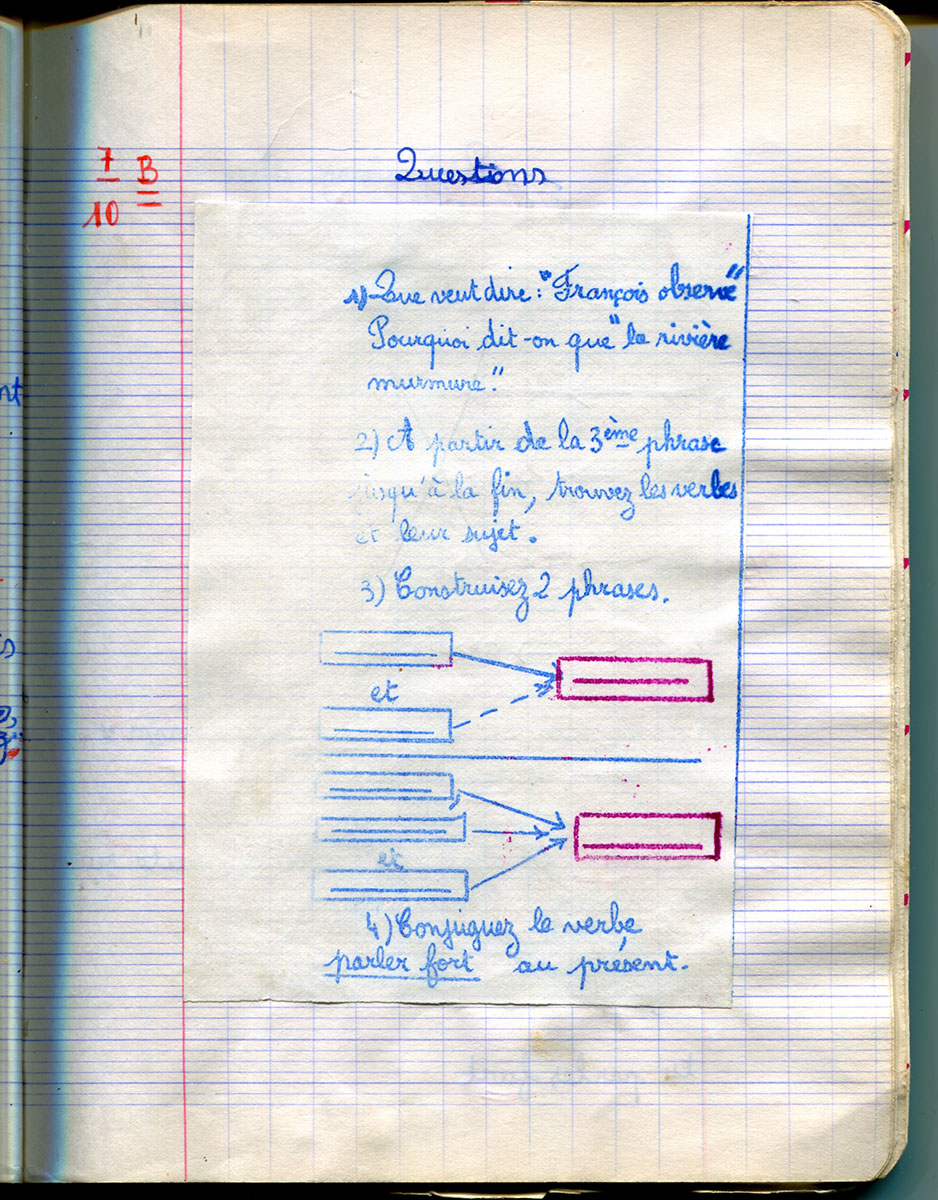 7 B
10
Questions
1) Que veut dire : "François observe"
Pourquoi dit-on que "la rivière
murmure."
2) A partir de la 3ème phrase
jusqu'à la fin, trouvez les verbes
et leur sujet.
3) Construisez 2 phrases.
et
et
4) Conjuguez le verbe
parler fort au présent.